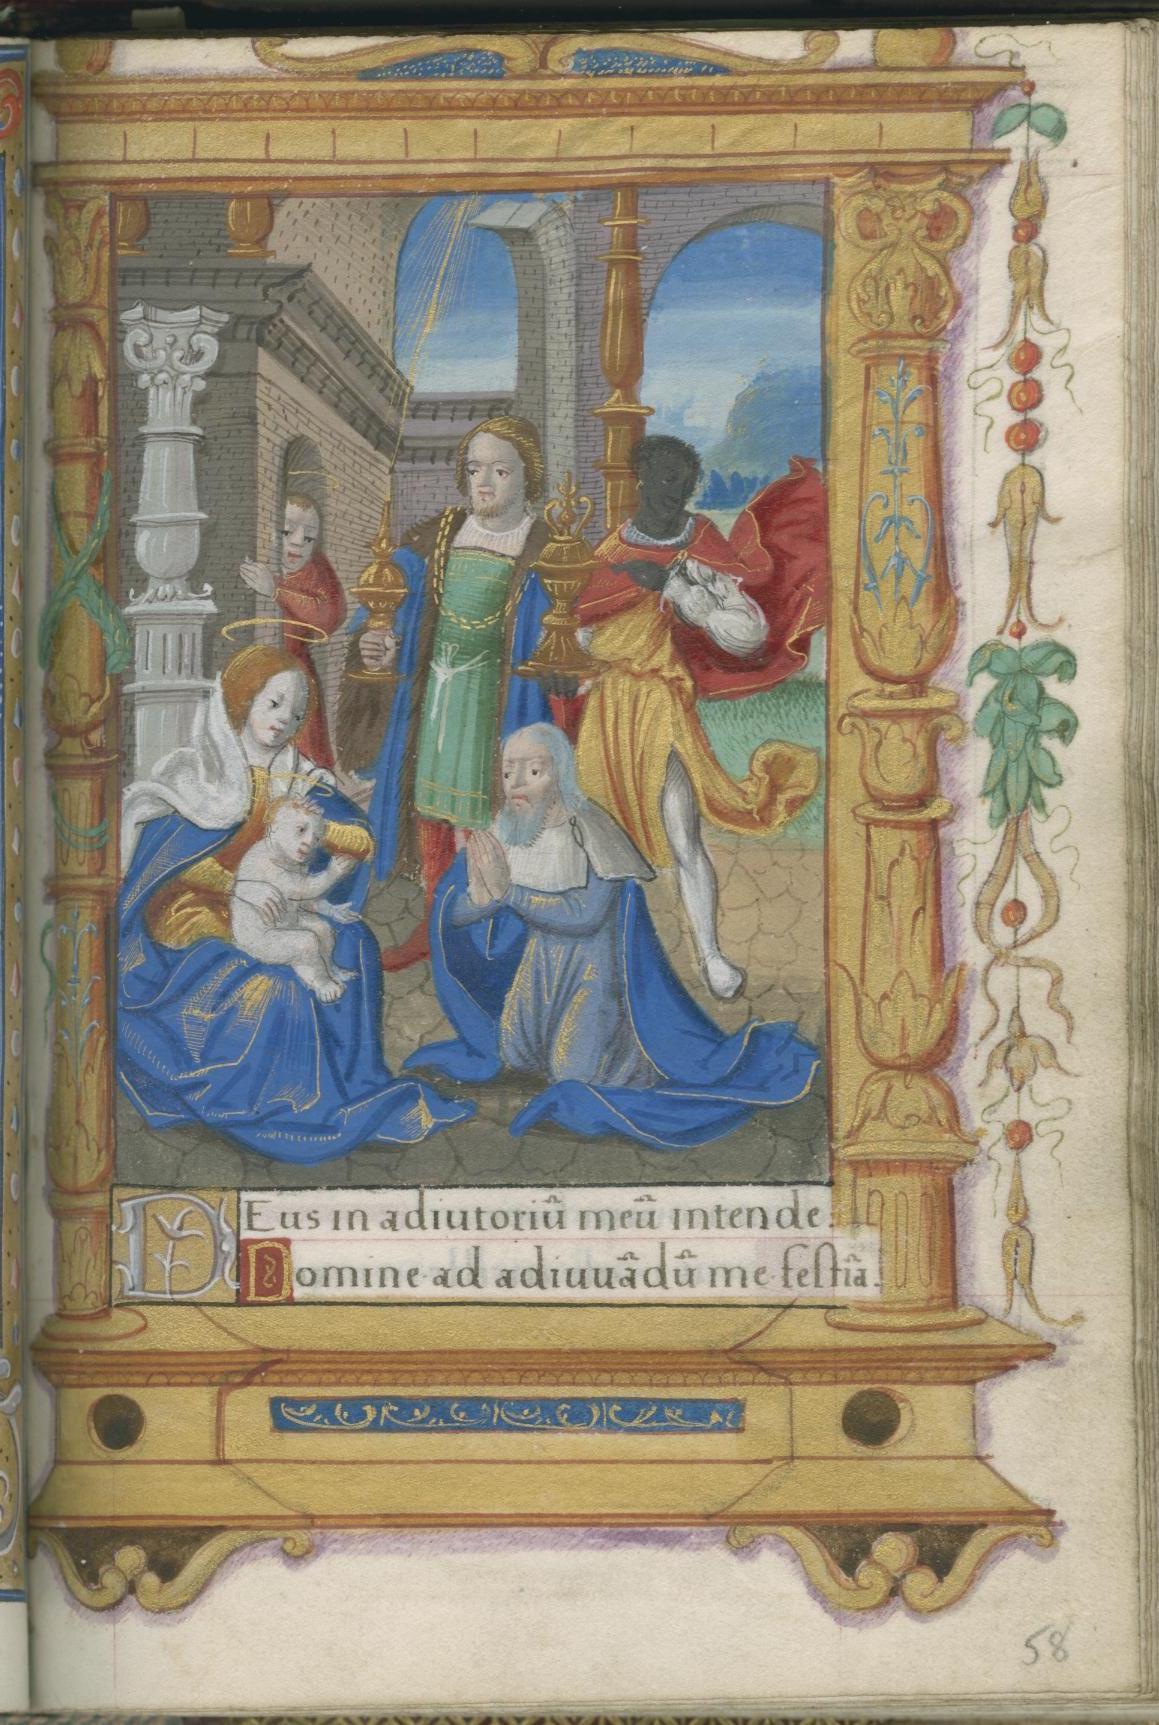 DEus in adiutoriū meū intende.
Domine ad adiuuādū me festiā.
58